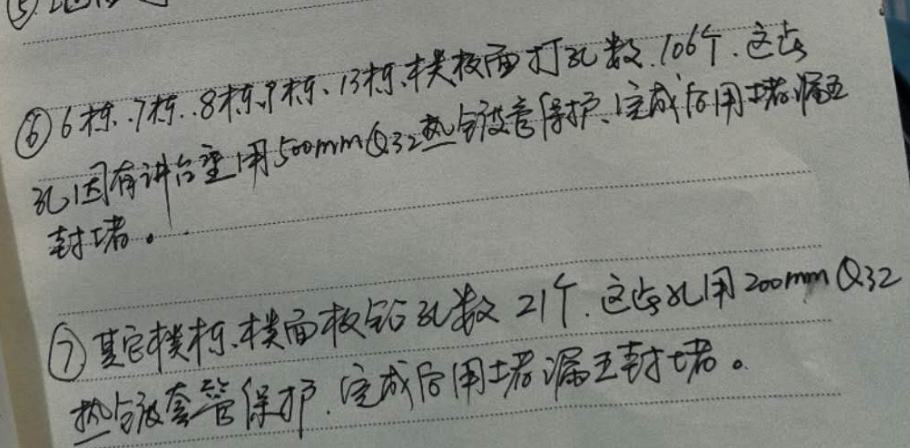 ⑥6栋、7栋、8栋、9栋、13栋、楼板面打孔数106个.这些
孔因有讲台垂用500mmQ32热镀管保护、完成后用堵漏王
封堵。
⑦其它楼栋、楼面板钻孔数21个.这些孔用200mmQ32
热镀套管保护.完成后用堵漏王封堵。